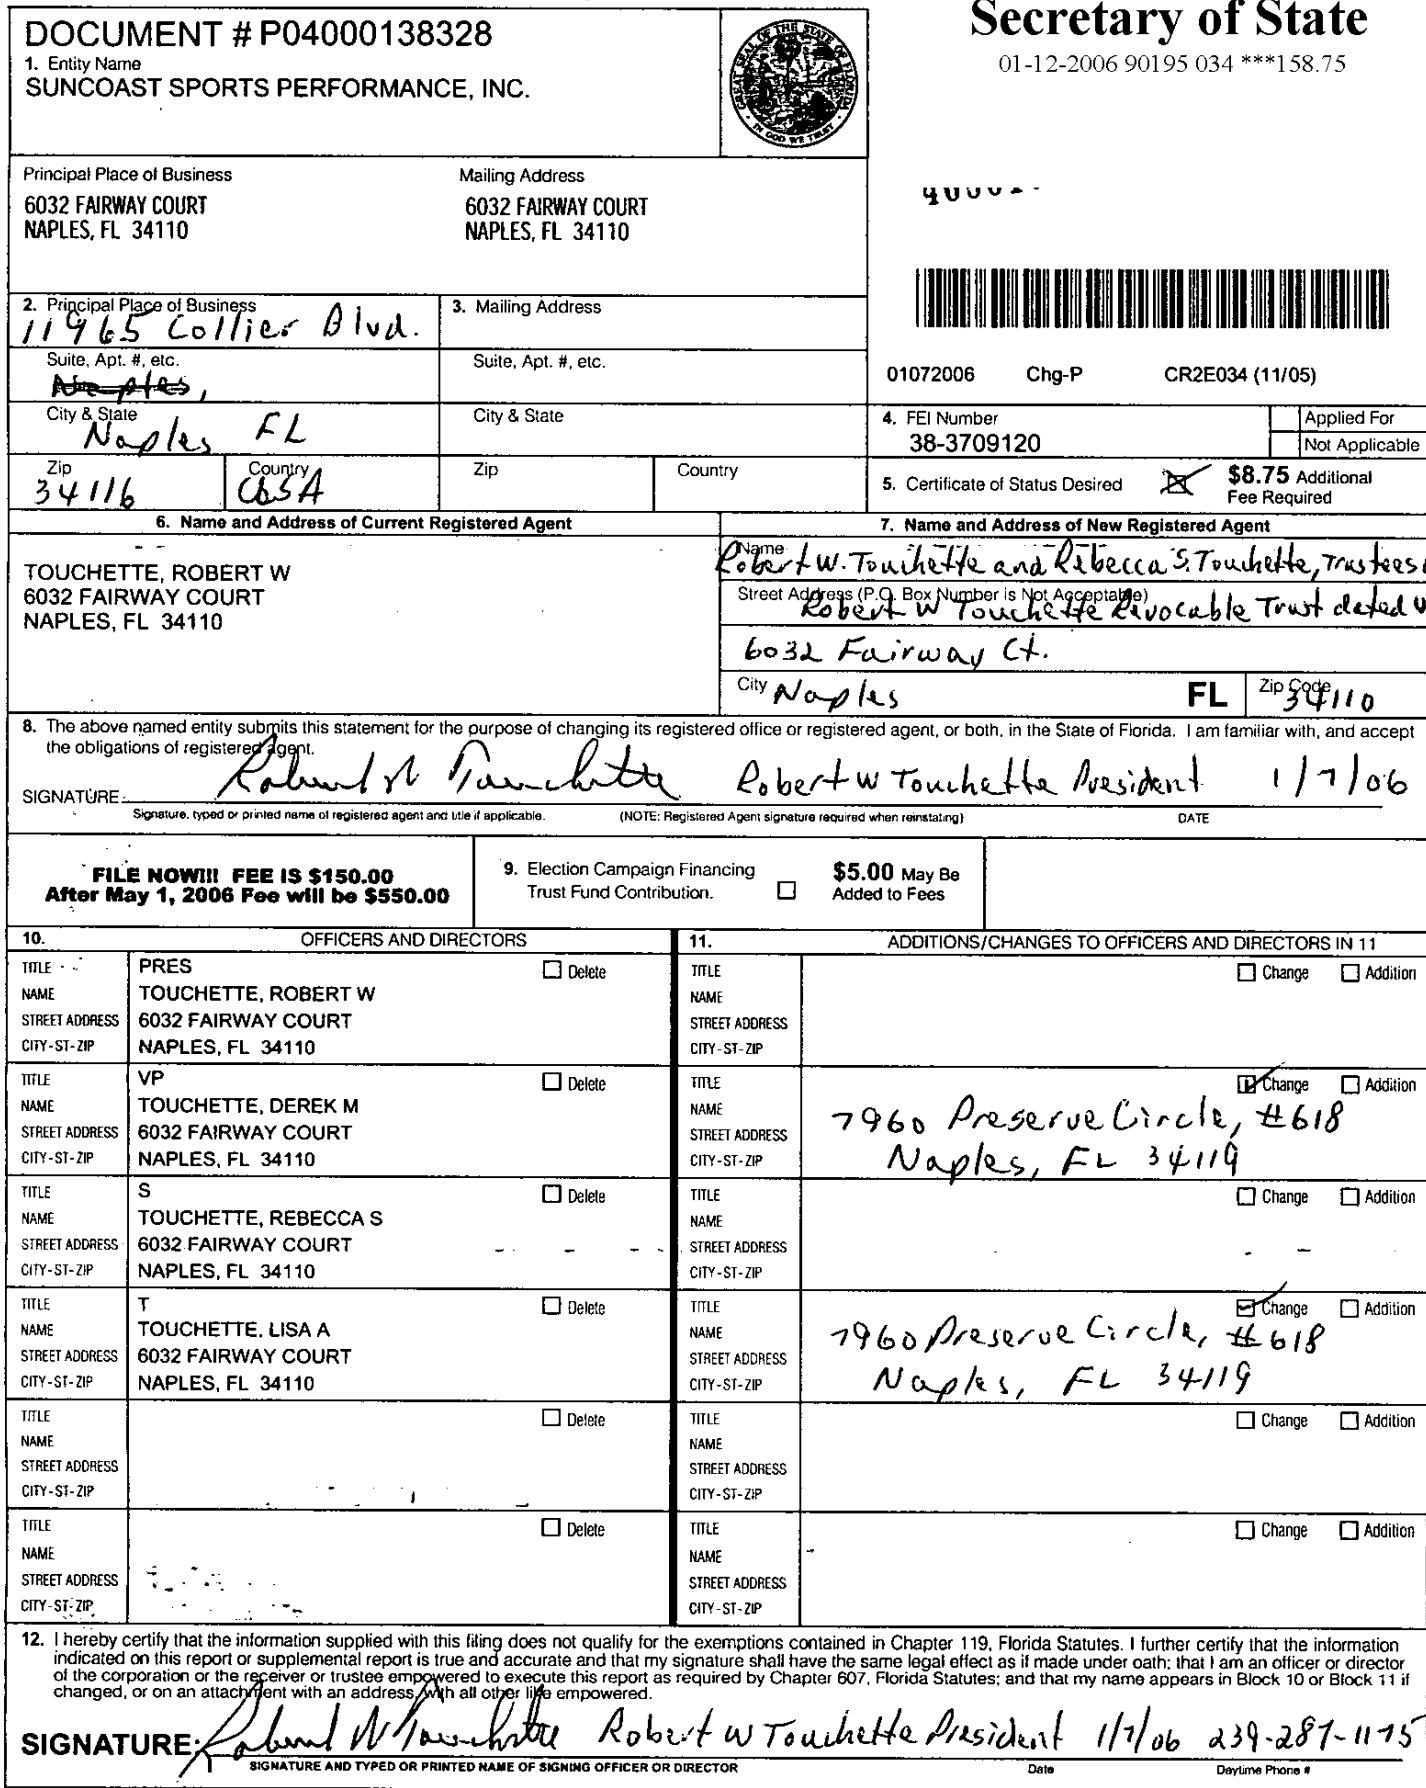 Secretary of State
01-12-2006 90195 034 ***158.75
DOCUMENT # P04000138328
1. Entity Name
SUNCOAST SPORTS PERFORMANCE, INC.
GREAT SEAL OF THE STATE OF FLORIDA
IN GOD WE TRUST
Principal Place of Business
6032 FAIRWAY COURT
NAPLES, FL 34110
Mailing Address
6032 FAIRWAY COURT
NAPLES, FL 34110
2. Principal Place of Business
11965 Collier Blvd.
3. Mailing Address
Suite, Apt. #, etc.
Naples,
Suite, Apt. #, etc.
01072006 Chg-P CR2E034 (11/05)
City & State
Naples FL
City & State
4. FEI Number
38-3709120
Applied For
Not Applicable
Zip
34116
Country
USA
Zip
Country
5. Certificate of Status Desired
$8.75 Additional
Fee Required
6. Name and Address of Current Registered Agent
TOUCHETTE, ROBERT W
6032 FAIRWAY COURT
NAPLES, FL 34110
7. Name and Address of New Registered Agent
Name
Robert W. Touchette and Rebecca S. Touchette, Trustees
Street Address (P.O. Box Number is Not Acceptable)
Robert W Touchette Revocable Trust dated
6032 Fairway Ct.
City Naples FL Zip Code 34110
8. The above named entity submits this statement for the purpose of changing its registered office or registered agent, or both, in the State of Florida. I am familiar with, and accept
the obligations of registered agent.
SIGNATURE: Robert W Touchette Robert W Touchette President 1/7/06
Signature, typed or printed name of registered agent and title if applicable. (NOTE: Registered Agent signature required when reinstating) DATE
FILE NOW!!! FEE IS $150.00
After May 1, 2006 Fee will be $550.00
9. Election Campaign Financing
Trust Fund Contribution.
$5.00 May Be
Added to Fees
10. OFFICERS AND DIRECTORS
11. ADDITIONS/CHANGES TO OFFICERS AND DIRECTORS IN 11
TITLE PRES Delete
NAME TOUCHETTE, ROBERT W
STREET ADDRESS 6032 FAIRWAY COURT
CITY-ST-ZIP NAPLES, FL 34110
TITLE Change Addition
NAME
STREET ADDRESS
CITY-ST-ZIP
TITLE VP Delete
NAME TOUCHETTE, DEREK M
STREET ADDRESS 6032 FAIRWAY COURT
CITY-ST-ZIP NAPLES, FL 34110
TITLE Change Addition
NAME
STREET ADDRESS 7960 Preserve Circle, #618
CITY-ST-ZIP Naples, FL 34119
TITLE S Delete
NAME TOUCHETTE, REBECCA S
STREET ADDRESS 6032 FAIRWAY COURT
CITY-ST-ZIP NAPLES, FL 34110
TITLE Change Addition
NAME
STREET ADDRESS
CITY-ST-ZIP
TITLE T Delete
NAME TOUCHETTE, LISA A
STREET ADDRESS 6032 FAIRWAY COURT
CITY-ST-ZIP NAPLES, FL 34110
TITLE Change Addition
NAME
STREET ADDRESS 7960 Preserve Circle, #618
CITY-ST-ZIP Naples, FL 34119
TITLE Delete
NAME
STREET ADDRESS
CITY-ST-ZIP
TITLE Change Addition
NAME
STREET ADDRESS
CITY-ST-ZIP
TITLE Delete
NAME
STREET ADDRESS
CITY-ST-ZIP
TITLE Change Addition
NAME
STREET ADDRESS
CITY-ST-ZIP
12. I hereby certify that the information supplied with this filing does not qualify for the exemptions contained in Chapter 119, Florida Statutes. I further certify that the information
indicated on this report or supplemental report is true and accurate and that my signature shall have the same legal effect as if made under oath; that I am an officer or director
of the corporation or the receiver or trustee empowered to execute this report as required by Chapter 607, Florida Statutes; and that my name appears in Block 10 or Block 11 if
changed, or on an attachment with an address, with all other like empowered.
SIGNATURE: Robert W Touchette Robert W Touchette President 1/7/06 239-287-1175
SIGNATURE AND TYPED OR PRINTED NAME OF SIGNING OFFICER OR DIRECTOR Date Daytime Phone #